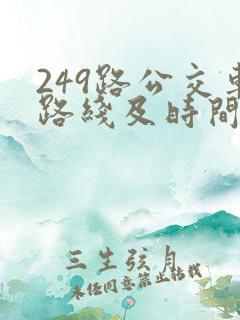 249路公交車
路綫及時間
三生弦月
未经同意禁止转载